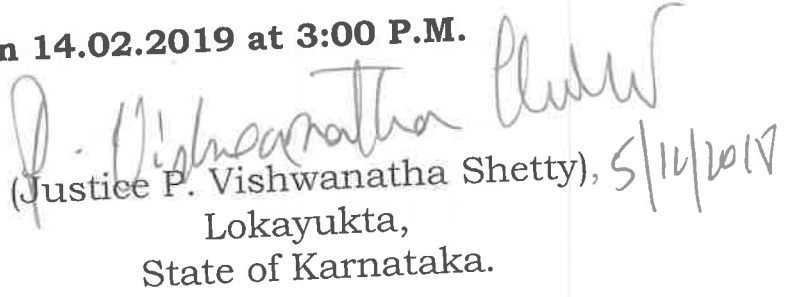 n 14.02.2019 at 3:00 P.M.
P. Vishwanatha Shetty
(Justice P. Vishwanatha Shetty),
Lokayukta,
State of Karnataka.